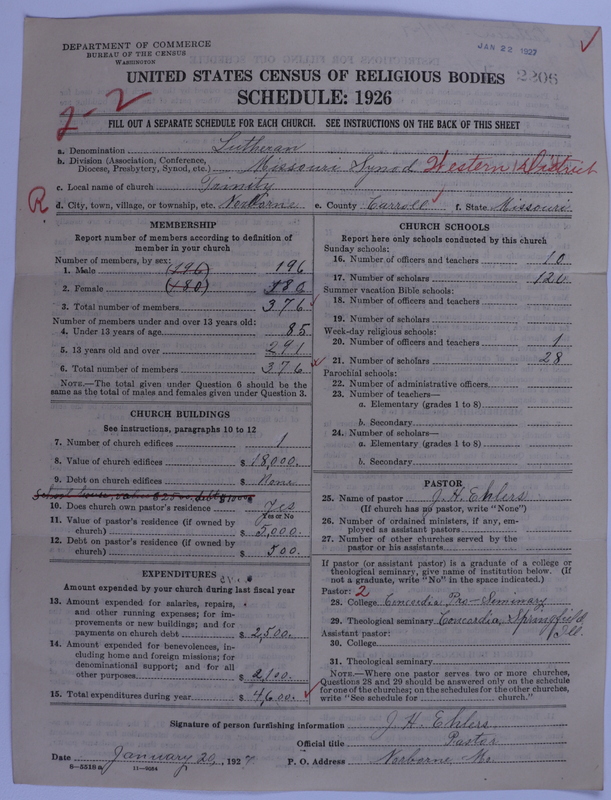 DEPARTMENT OF COMMERCE
BUREAU OF THE CENSUS
WASHINGTON
JAN 22 1927
2306
UNITED STATES CENSUS OF RELIGIOUS BODIES
SCHEDULE: 1926
2-2
FILL OUT A SEPARATE SCHEDULE FOR EACH CHURCH. SEE INSTRUCTIONS ON THE BACK OF THIS SHEET
a. Denomination Lutheran
b. Division (Association, Conference,
Diocese, Presbytery, Synod, etc.) Missouri Synod Western District
c. Local name of church Trinity
R
d. City, town, village, or township, etc. Norborne e. County Carroll f. State Missouri
MEMBERSHIP
Report number of members according to definition of
member in your church
Number of members, by sex:
1. Male (196) 196
2. Female (180) 180
3. Total number of members 376
Number of members under and over 13 years old:
4. Under 13 years of age 85
5. 13 years old and over 291
6. Total number of members 376
NOTE.—The total given under Question 6 should be
the same as the total of males and females given under Question 3.
CHURCH BUILDINGS
See instructions, paragraphs 10 to 12
7. Number of church edifices 1
8. Value of church edifices $ 18,000.
9. Debt on church edifices $ None
School house, value $2500. debt $1000
10. Does church own pastor's residence Yes
Yes or No
11. Value of pastor's residence (if owned by
church) $ 5,000.
12. Debt on pastor's residence (if owned by
church) $ 500.
EXPENDITURES
Amount expended by your church during last fiscal year
13. Amount expended for salaries, repairs,
and other running expenses; for im-
provements or new buildings; and for
payments on church debt $ 2,500.
14. Amount expended for benevolences, in-
cluding home and foreign missions; for
denominational support; and for all
other purposes $ 2,100.
15. Total expenditures during year $ 4,600.
CHURCH SCHOOLS
Report here only schools conducted by this church
Sunday schools:
16. Number of officers and teachers 10
17. Number of scholars 120
Summer vacation Bible schools:
18. Number of officers and teachers
19. Number of scholars
Week-day religious schools:
20. Number of officers and teachers 1
21. Number of scholars 28
Parochial schools:
22. Number of administrative officers
23. Number of teachers—
a. Elementary (grades 1 to 8)
b. Secondary
24. Number of scholars—
a. Elementary (grades 1 to 8)
b. Secondary
PASTOR
25. Name of pastor J. H. Ehlers
(If church has no pastor, write "None")
26. Number of ordained ministers, if any, em-
ployed as assistant pastors
27. Number of other churches served by the
pastor or his assistants
If pastor (or assistant pastor) is a graduate of a college or
theological seminary, give name of institution below. (If
not a graduate, write "No" in the space indicated.)
Pastor: 2
28. College Concordia Pro-Seminary
29. Theological seminary Concordia, Springfield, Ill.
Assistant pastor:
30. College
31. Theological seminary
NOTE.—Where one pastor serves two or more churches,
Questions 28 and 29 should be answered only on the schedule
for one of the churches; on the schedules for the other churches,
write "See schedule for church."
Signature of person furnishing information J. H. Ehlers
Official title Pastor
Date January 20, 1927 P. O. Address Norborne Mo.
8—5518a 11—9084